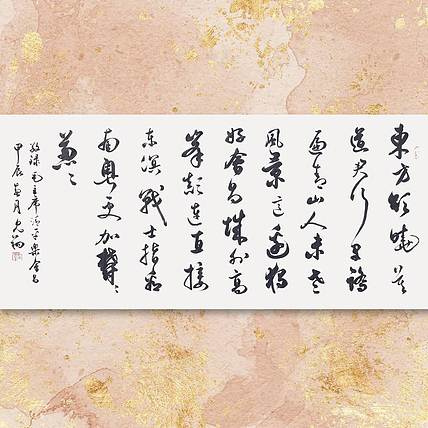 東方欲曉莫
道君行早踏
遍青山人未老
風景這邊獨
好會昌城外高
峯顛連直接
東溟戰士指看
南粵更加鬱々
蔥々
敬録毛主席清平樂會昌
甲辰月